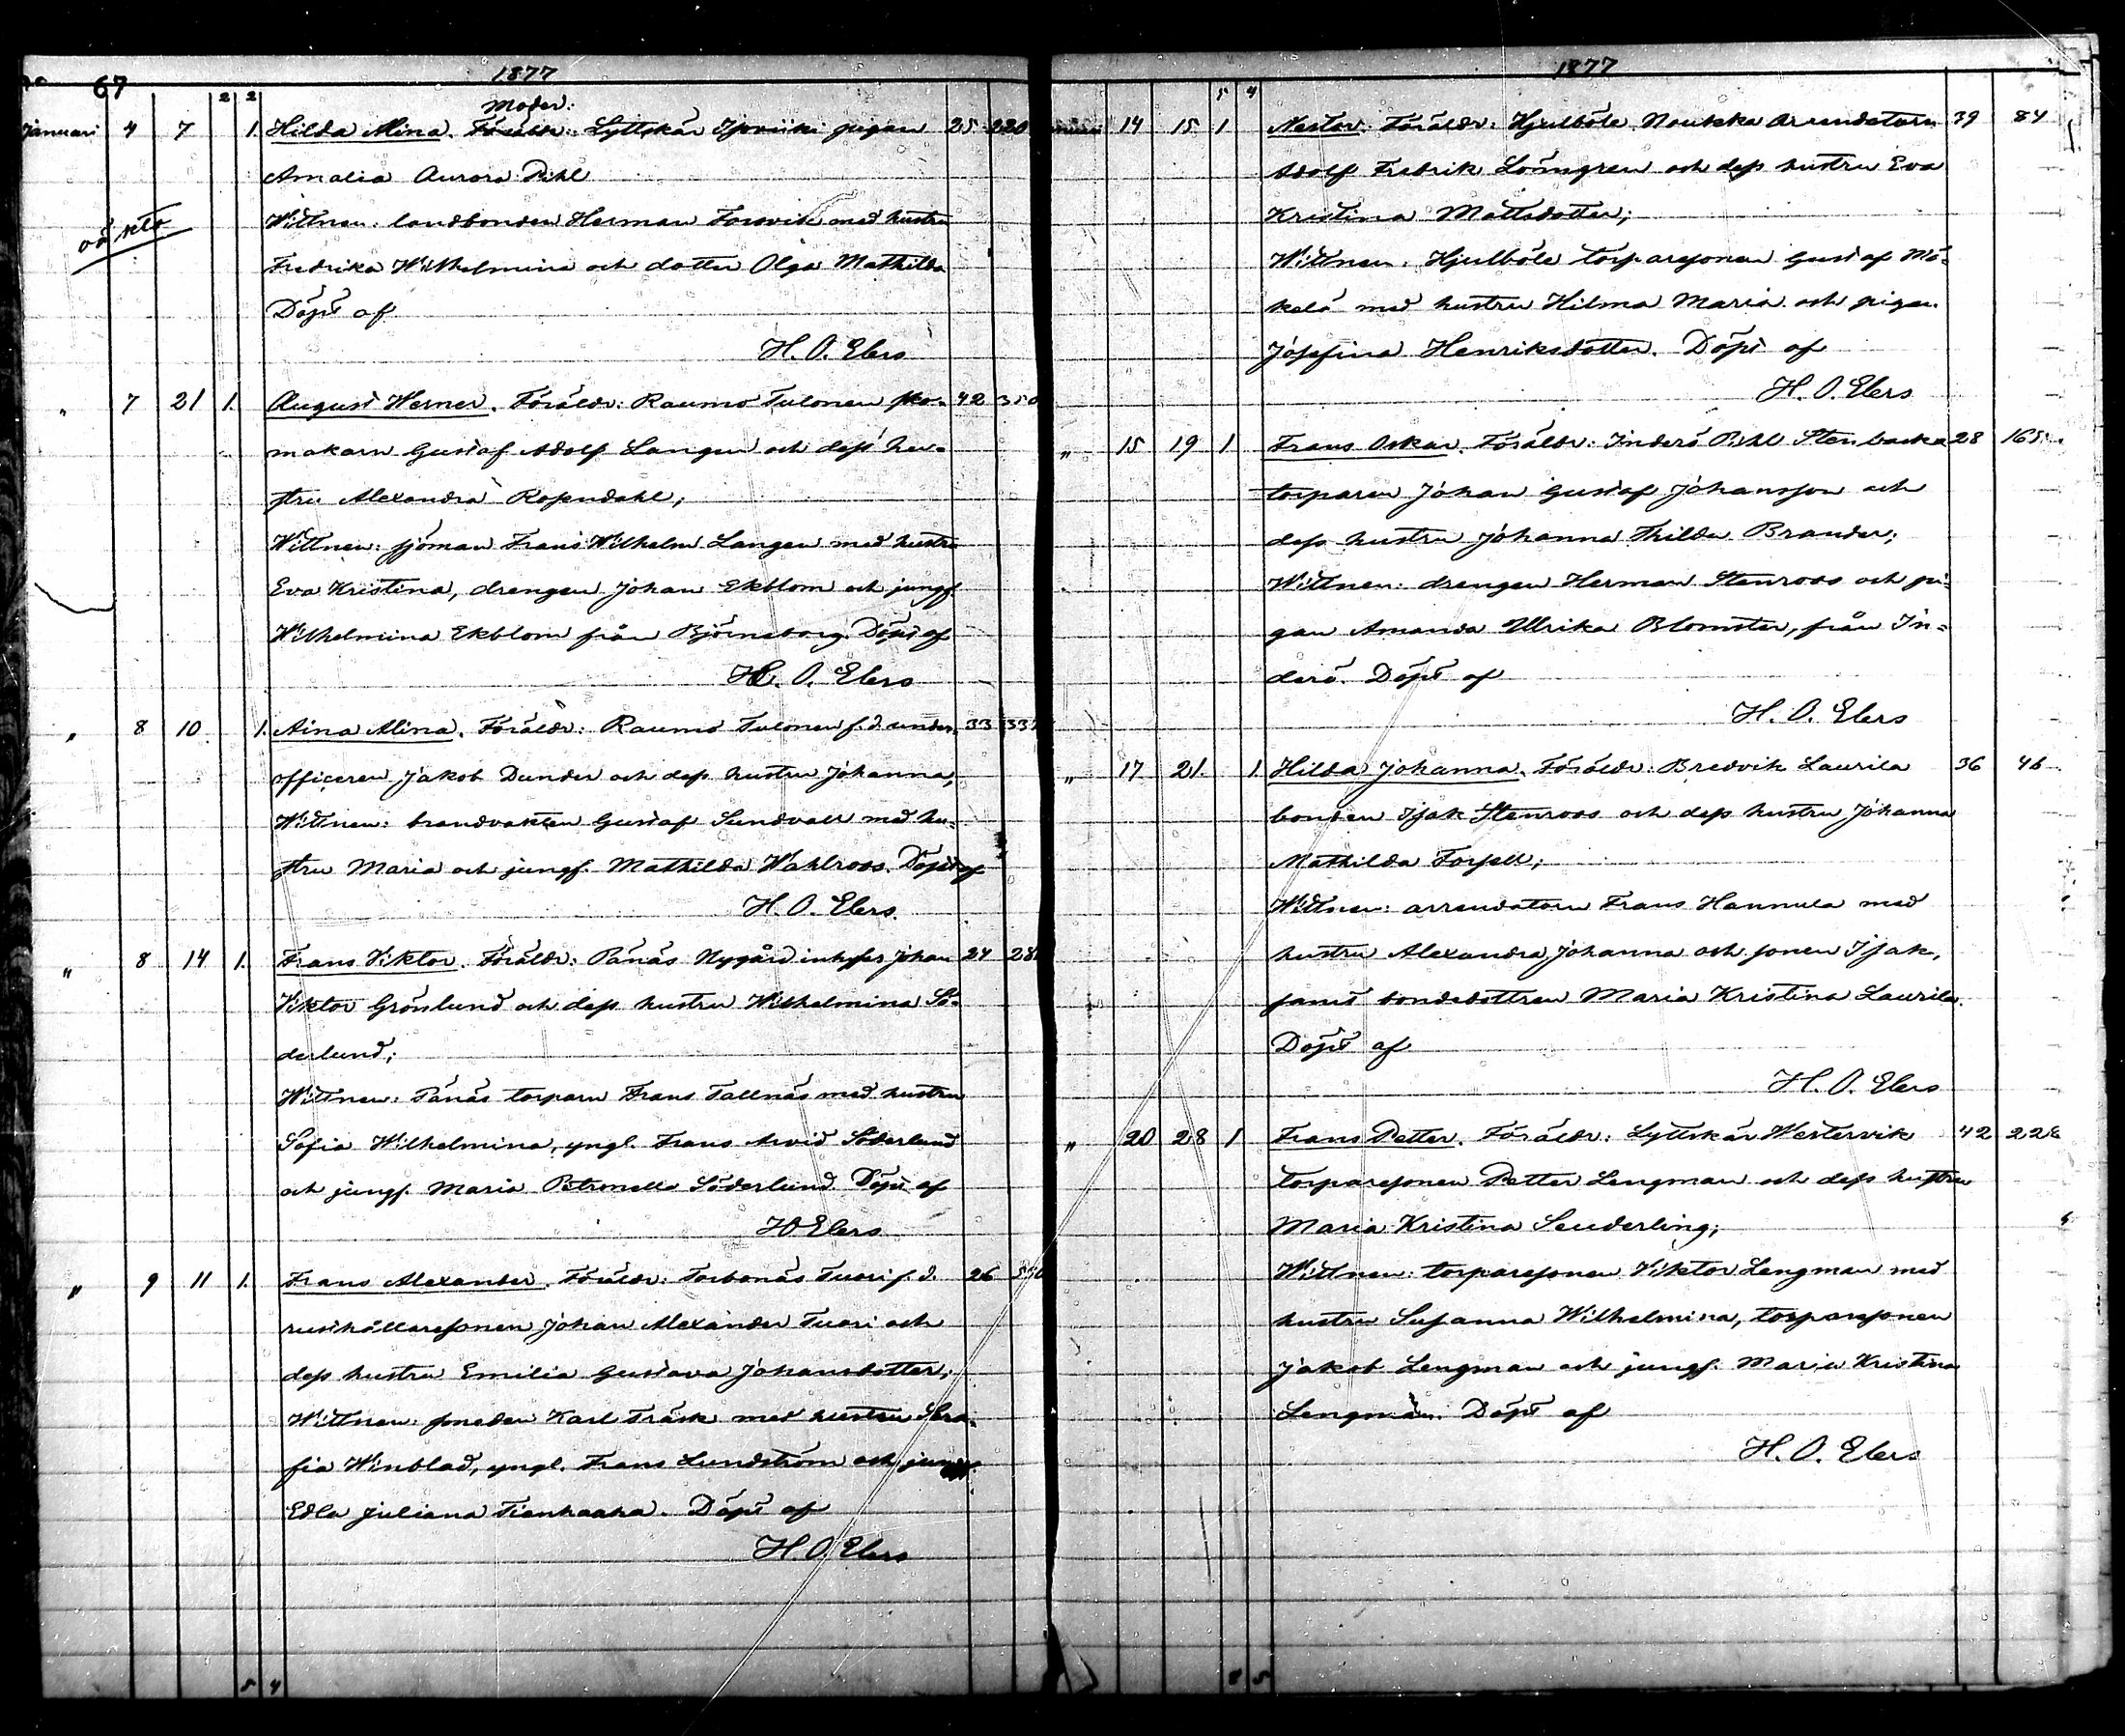 67 1877
2 2 Moder:
Januari 4 7 1. Hilda Alina. Föräldr: Lyttskär Isoviiki pigan 25 220
Amalia Aurora Pihl
oä kta
Wittnen: landbonden Herman Forsvik med hustru
Fredrika Wilhelmina och dotter Olga Mathilda
Döpt af
H. O. Elers
" 7 21 1. August Werner. Föräldr: Raumo Tulonen sko- 42 350
makarn Gustaf Adolf Langen och dess hu-
stru Alexandra Rosendahl;
Wittnen: sjöman Frans Wilhelm Langen med hustru
Eva Kristina, drengen Johan Ekblom och jungf
Wilhelmina Ekblom från Björneborg. Döpt af
H. O. Elers
" 8 10 1. Aina Alina. Föräldr: Raumo Tulonen f.d. under- 33 337
officeren Jakob Dunder och dess hustru Johanna,
Wittnen: brandvakten Gustaf Sundvall med hu-
stru Maria och jungf. Mathilda Wahlroos. Döpt af
H. O. Elers.
" 8 14 1. Frans Viktor. Föräldr: Pånäs Nygård inhyses Johan 24 281
Viktor Grönlund och dess hustru Wilhelmina Sö-
derlund;
Wittnen: Pånäs torparn Frans Tallnäs med hustru
Sofia Wilhelmina, yngl. Frans Arvid Söderlund
och jungf. Maria Petronella Söderlund. Döpt af
H O Elers
" 9 11 1. Frans Alexander. Föräldr: Torbonäs Tuori f. d. 26
rusthållaresonen Johan Alexander Tuori och
dess hustru Emilia Gustava Johansdotter;
Wittnen: smeden Karl Träsk med hustru Sera-
fia Winblad, yngl. Frans Lundström och jungf.
Edla Juliana Tienhaaha. Döpt af
H. O. Elers
5 4
1877
5 4
14 15 1 Nestor. Föräldr: Hjulböle Noukka Arrendatorn 39 84
Adolf Fredrik Löfngren och dess hustru Eva
Kristina Mattsdotter;
Wittnen: Hjulböle torparesonen Gustaf Mä-
kelä med hustru Hilma Maria och pigan
Josefina Henriksdotter. Döpt af
H. O. Elers
" 15 19 1 Frans Oskar. Föräldr: Inderö Pihl Stenbacka 28 165
torparen Johan Gustaf Johansson och
dess hustru Johanna Thilda Brander;
Wittnen: drengen Herman Stenroos och pi-
gan Amanda Ulrika Blomster, från In-
derö. Döpt af
H. O. Elers
" 17 21. 1. Hilda Johanna. Föräldr: Bredvik Laurila 36 46
bonden Isak Stenroos och dess hustru Johanna
Mathilda Forsell;
Wittnen: arrendatorn Frans Hannula med
hustru Alexandra Johanna och sonen Isak,
samt bondedottren Maria Kristina Laurila.
Döpt af
H. O. Elers
" 20 28 1 Frans Petter. Föräldr: Lyttskär Westervik 42 228
torparesonen Petter Lengman och dess hustru
Maria Kristina Senderling;
Wittnen: torparesonen Viktor Lengman med
hustru Susanna Wilhelmina, torparesonen
Jakob Lengman och jungf. Maria Kristina
Lengman. Döpt af
H. O. Elers
8 5